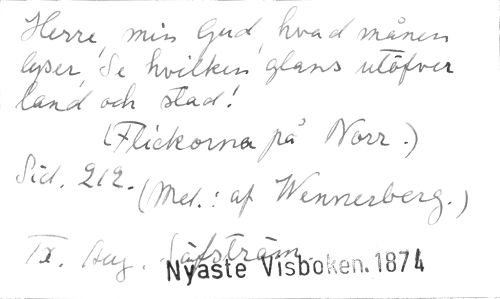 Herre, min Gud, hvad månen
lyser, Se hvilken glans utöfver
land och stad!
(Flickorna på Norr.)
Sid. 212. (Mel.: af Wennerberg.)
Tx. Aug. Säfström.
Nyaste Visboken. 1874